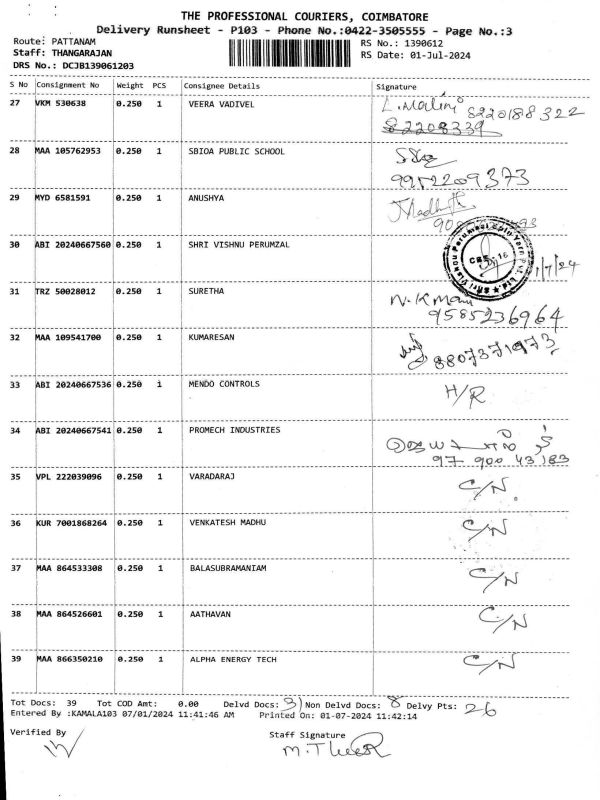 THE PROFESSIONAL COURIERS, COIMBATORE
Delivery Runsheet - P103 - Phone No.:0422-3505555 - Page No.:3
Route: PATTANAM RS No.: 1390612
Staff: THANGARAJAN RS Date: 01-Jul-2024
DRS No.: DCJB139061203
S No Consignment No Weight PCS Consignee Details Signature
27 VKM 530638 0.250 1 VEERA VADIVEL L. Malini 8220188322
82208339
28 MAA 105762953 0.250 1 SBIOA PUBLIC SCHOOL
9952209373
29 MYD 6581591 0.250 1 ANUSHYA
30 ABI 20240667560 0.250 1 SHRI VISHNU PERUMZAL 1/7/24
31 TRZ 50028012 0.250 1 SURETHA N.K Mani
9585236964
32 MAA 109541700 0.250 1 KUMARESAN 8807371973
33 ABI 20240667536 0.250 1 MENDO CONTROLS H/R
34 ABI 20240667541 0.250 1 PROMECH INDUSTRIES
97 900 43183
35 VPL 222039096 0.250 1 VARADARAJ C/N
36 KUR 7001868264 0.250 1 VENKATESH MADHU C/N
37 MAA 864533308 0.250 1 BALASUBRAMANIAM C/N
38 MAA 864526601 0.250 1 AATHAVAN C/N
39 MAA 866350210 0.250 1 ALPHA ENERGY TECH C/N
Tot Docs: 39 Tot COD Amt: 0.00 Delvd Docs: 31 Non Delvd Docs: 8 Delvy Pts: 26
Entered By :KAMALA103 07/01/2024 11:41:46 AM Printed On: 01-07-2024 11:42:14
Verified By Staff Signature